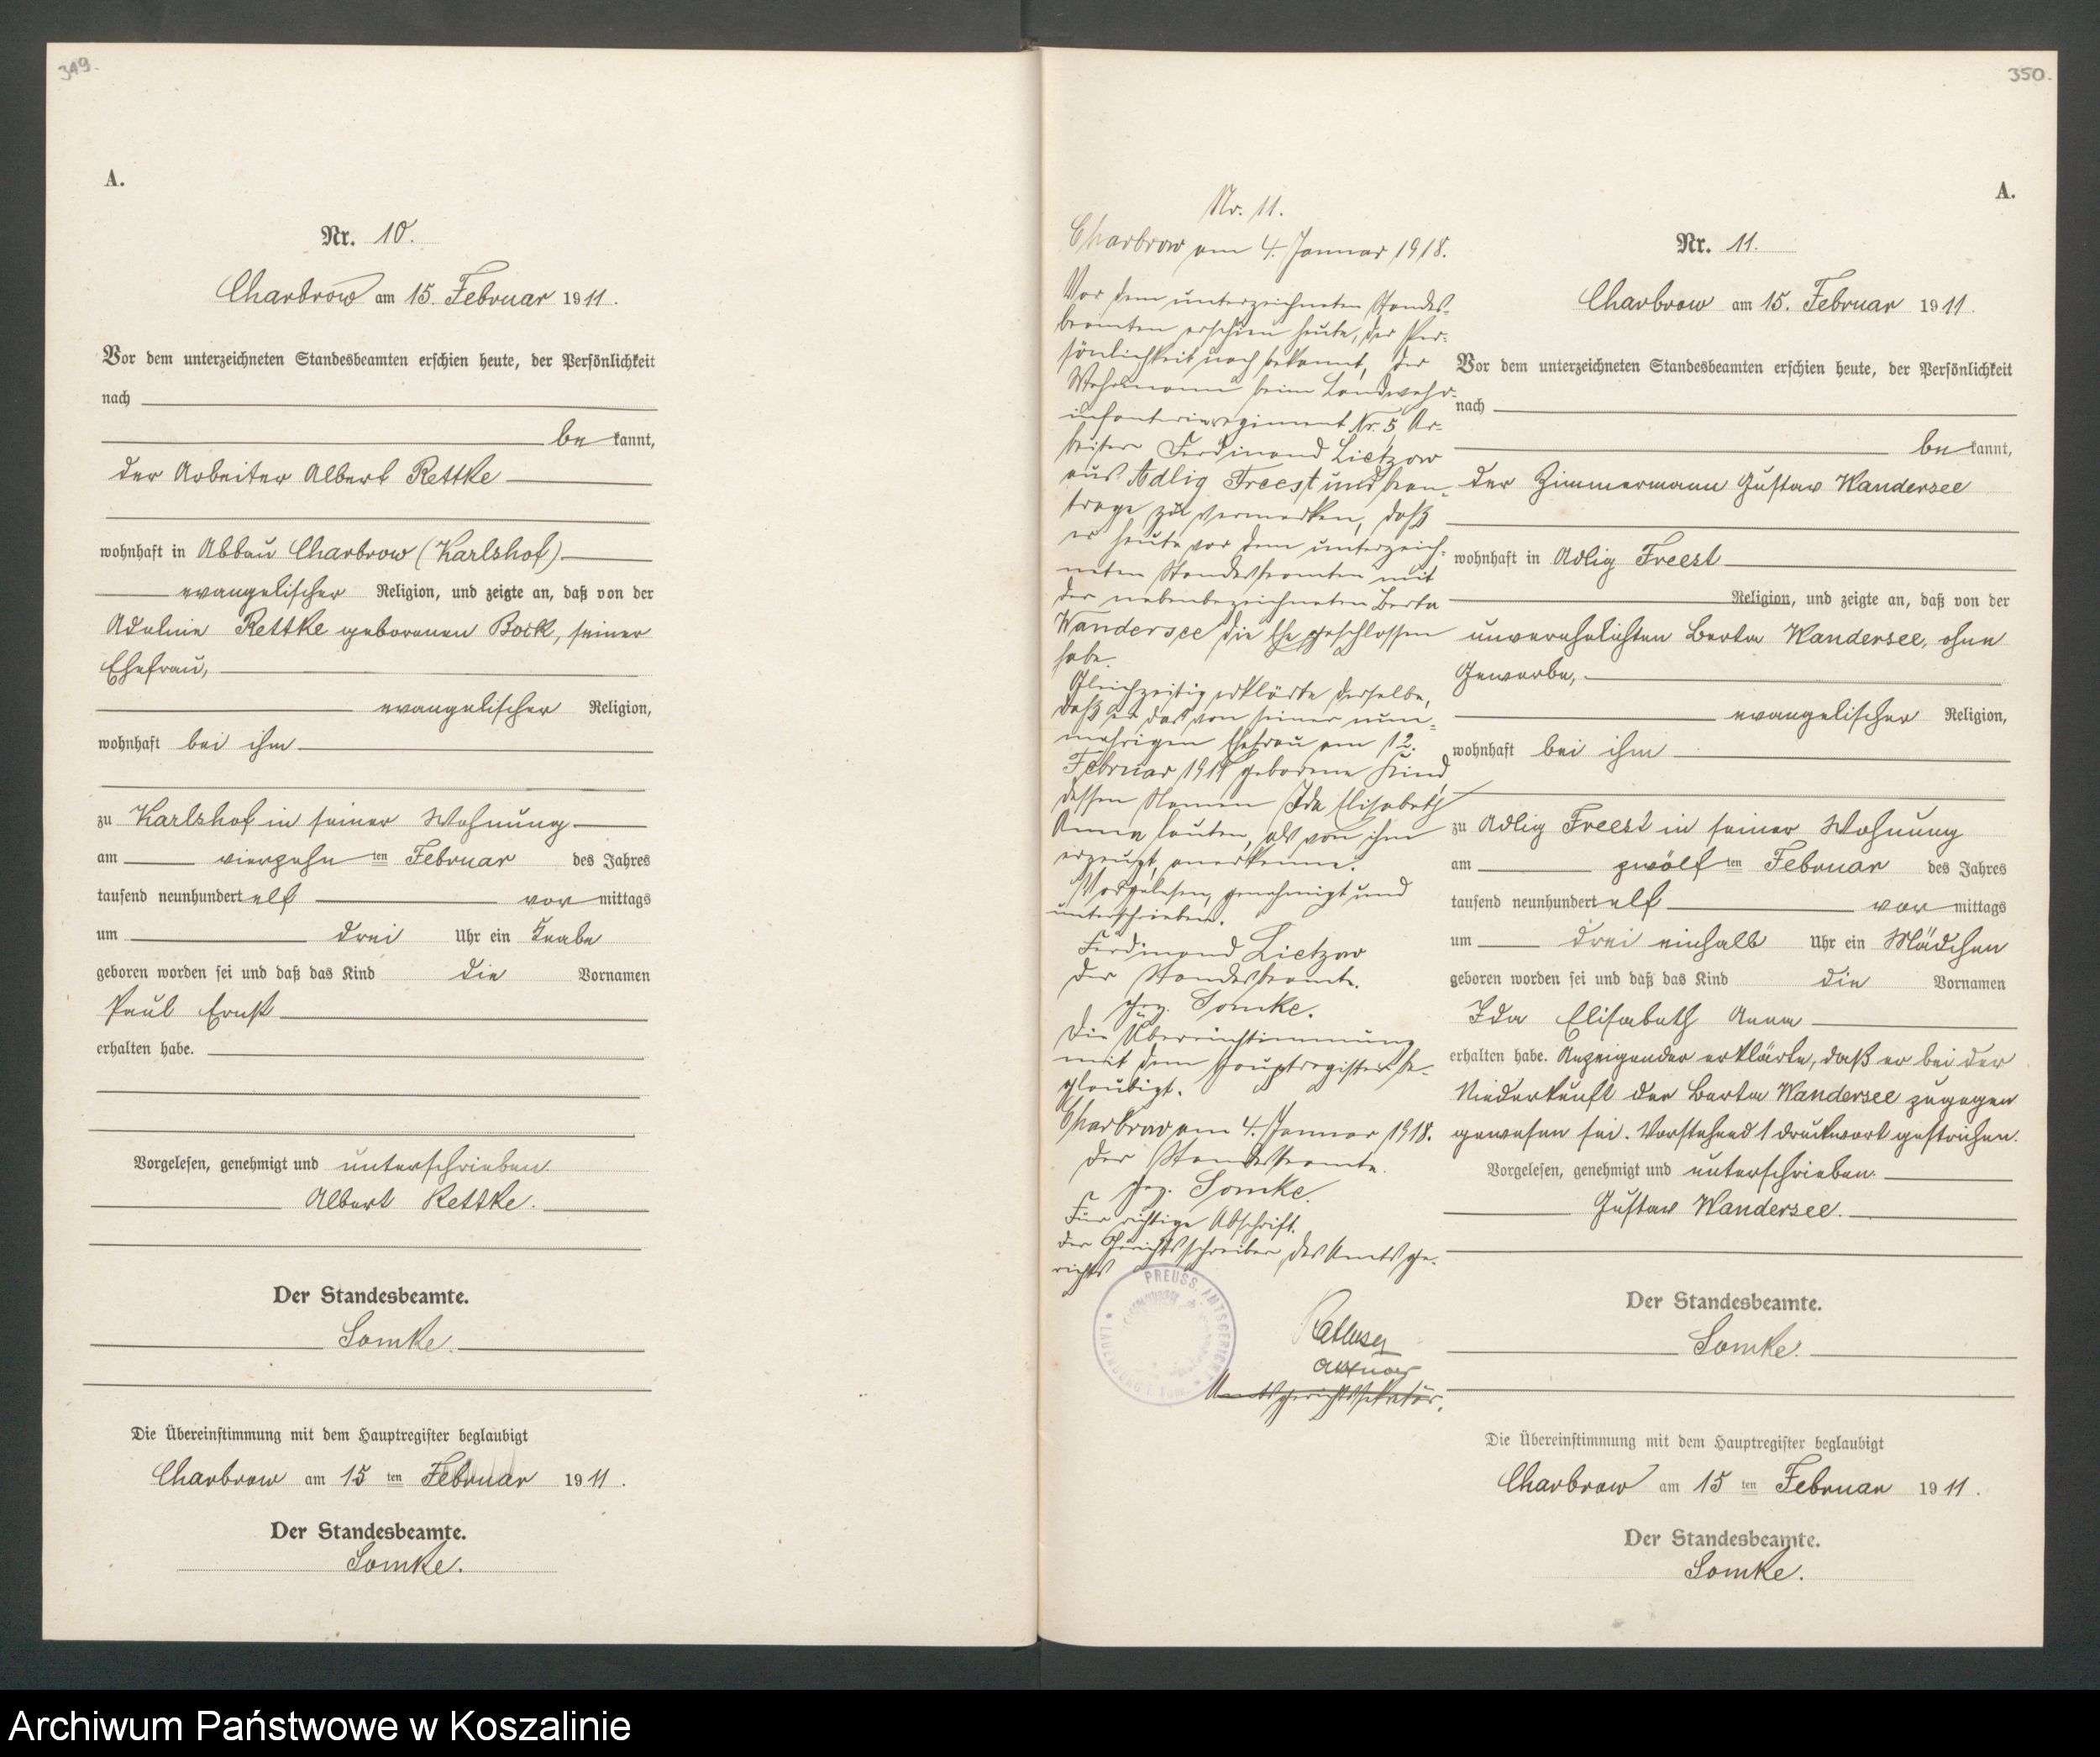 349.
A.
Nr. 10.
Charbrow am 15. Februar 1911.
Vor dem unterzeichneten Standesbeamten erschien heute, der Persönlichkeit
nach
be kannt,
der Arbeiter Albert Rettke
wohnhaft in Abbau Charbrow (Karlshof)
evangelischer Religion, und zeigte an, daß von der
Adeline Rettke geborenen Bock, seiner
Ehefrau,
evangelischer Religion,
wohnhaft bei ihm
zu Karlshof in seiner Wohnung
am vierzehn ten Februar des Jahres
tausend neunhundert elf vor mittags
um drei Uhr ein Knabe
geboren worden sei und daß das Kind die Vornamen
Paul Ernst
erhalten habe.
Vorgelesen, genehmigt und unterschrieben.
Albert Rettke.
Der Standesbeamte.
Somke.
Die Übereinstimmung mit dem Hauptregister beglaubigt
Charbrow am 15 ten Februar 1911.
Der Standesbeamte.
Somke.
350.
A.
Nr. 11.
Charbrow am 4. Januar 1918.
Vor dem unterzeichneten Standes-
beamten erschien heute, der Per-
sönlichkeit nach bekannt, der
Wehrmann beim Landwehr-
infanterieregiment Nr. 5 Ar-
beiter Ferdinand Lietzow
aus Adlig Freest und bean-
trage zu vermerken, daß
er heute vor dem unterzeich-
neten Standesbeamten mit
der nebenbezeichneten Berta
Wandersee die Ehe geschlossen
habe.
Gleichzeitig erklärte derselbe,
daß er das von seiner nun-
mehrigen Ehefrau am 12.
Februar 1911 geborene Kind,
dessen Namen Ida Elisabeth
Anna lauten, als von ihm
erzeugt, anerkenne.
Vorgelesen, genehmigt und
unterschrieben.
Ferdinand Lietzow
Der Standesbeamte.
gez. Somke.
Die Übereinstimmung
mit dem Hauptregister be-
glaubigt.
Charbrow am 4. Januar 1918.
Der Standesbeamte.
gez. Somke.
Für richtige Abschrift.
Der Gerichtsschreiber des Amtsge-
richts
PREUSS. AMTSGERICHT
Aktuar
Amtsgerichtssekretär.
Nr. 11.
Charbrow am 15. Februar 1911.
Vor dem unterzeichneten Standesbeamten erschien heute, der Persönlichkeit
nach
be kannt,
der Zimmermann Gustav Wandersee
wohnhaft in Adlig Freest
Religion, und zeigte an, daß von der
unverehelichten Berta Wandersee, ohne
Gewerbe,
evangelischer Religion,
wohnhaft bei ihm
zu Adlig Freest in seiner Wohnung
am zwölf ten Februar des Jahres
tausend neunhundert elf vor mittags
um drei einhalb Uhr ein Mädchen
geboren worden sei und daß das Kind die Vornamen
Ida Elisabeth Anna
erhalten habe. Anzeigender erklärte, daß er bei der
Niederkunft der Berta Wandersee zugegen
gewesen sei. Vorstehend 1 Druckwort gestrichen.
Vorgelesen, genehmigt und unterschrieben.
Gustav Wandersee.
Der Standesbeamte.
Somke.
Die Übereinstimmung mit dem Hauptregister beglaubigt
Charbrow am 15 ten Februar 1911.
Der Standesbeamte.
Somke.
Archiwum Państwowe w Koszalinie